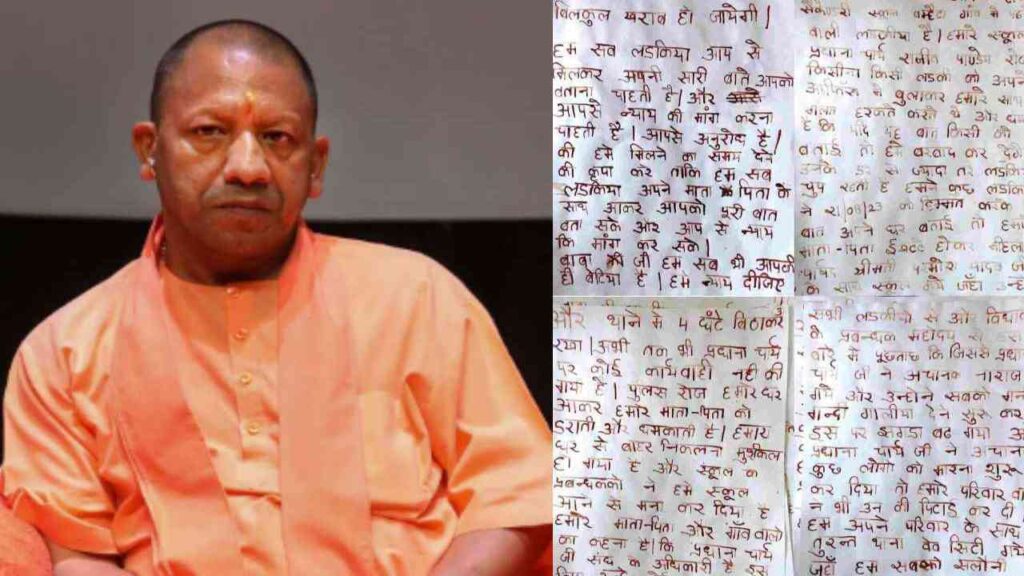 बिलकुल खराब हो जायेगी।
हम सब लडकिया आप से
मिलकर अपनी सारी बाते आपको
बताना चाहती है। और
आपसे न्याय की मांग करना
चाहती है। आपसे अनुरोध है।
की हमे मिलने का समय देने
की कृपा करे ताकि हम सब
लडकिया अपने माता पिता के
साथ आकर आपको पुरी बात
बता सके और आप से न्याय
कि मांग कर सके।
बाबा जी हम सब भी आपकी
ही बेटिया है। हमे न्याय दीजिए
वाली लडकीया है। हमारे स्कूल
प्रधाना चार्य राजीव पाण्डेय
किसीना किसी लडकी को अपने
ऑफिस मे बुलाकर हमारे साथ
गलत हरकत करते थे और
है कि यदि यह बात किसी को
बताई तो हमे बरबाद कर देगे
उनके डर से ज्यादा तर लडकिया
चुप रहती है हमने कुछ लडकि
ने 21/08/23 को हिम्मत करके
बात अपने घर बताई तो हमारे
माता-पिता इकठठे होकर
पार्षद श्रीमती यादव जी
के साथ स्कूल गये जहाँ उन्हो
और थाने मे 4 घंटे बिठाकर
रखा। अभी तक भी प्रधाना चार्य
पर कोई कार्यवाही नही की
गयी है। पुलस रोज हमारे घर
आकर हमारे माता-पिता को
डराती और धमकाती है। हमारा
घर से बाहर निकलना मुशकिल
हो गया है और स्कूल क
प्रबन्धकको ने हमे स्कूल
आने से मना कर दिया है
हमारे माता-पिता और गाँव वालो
का कहना है। कि प्रधाना चार्य
भी संघ क अधिकारी है इस
सभी लडकीयो से और विद्या
के प्रबन्धक महोदय से इस
बारे मे पूछताछ कि जिससे प्रधा
चार्य जी ने अचानक नाराज
गये और उन्होने सबको
गन्दी गालीया देने सुरू कर
इस पर झगडा बढ गया
प्रधाना चार्य जी ने अचान
कुछ लोगो को मारना शुरू
कर दिया तो हमारे परिवार वा
ने भी उन की पिटाई कर दी
हम अपने परिवार के साथ
तुरन्त थाना वेव सिटी गये
जहाँ हम सबको